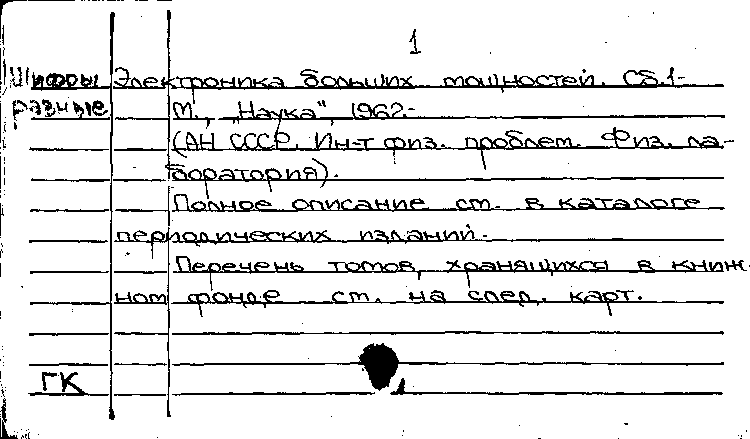 1
Шифры Электроника больших мощностей. Сб.1-
разные М., „Наука", 1962.-
(АН СССР. Ин-т физ. проблем. Физ. ла-
боратория).
Полное описание см. в каталоге
периодических изданий.
Перечень томов, хранящихся в книж-
ном фонде см. на след. карт.
ГК